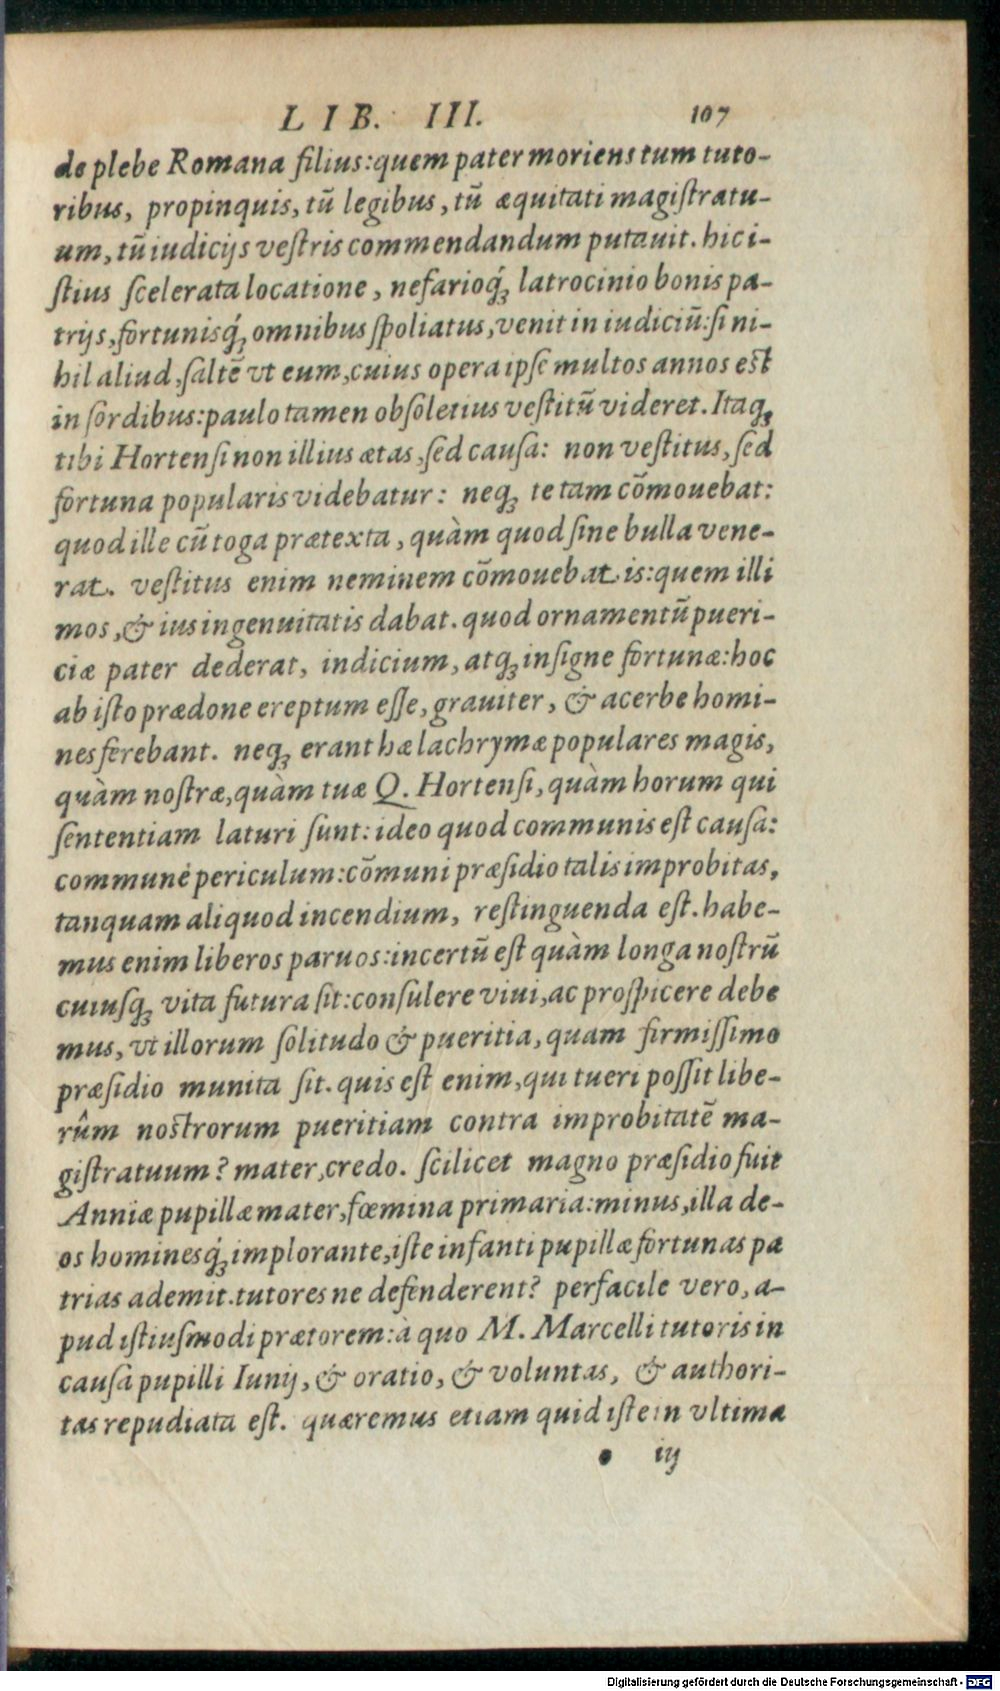 LIB. III. 107
de plebe Romana filius:quem pater moriens tum tuto-
ribus, propinquis, tũ legibus, tũ æquitati magiſtratu-
um, tũ iudicijs veſtris commendandum putauit. hic i-
ſtius ſcelerata locatione, nefarioq́ꝫ latrocinio bonis pa-
trijs, fortunisq́ꝫ omnibus ſpoliatus, venit in iudiciũ: ſi ni-
hil aliud, ſaltẽ vt eum, cuius opera ipſe multos annos eſt
in ſordibus: paulo tamen obſoletius veſtitũ videret. Itaqꝫ
tibi Hortenſi non illius ætas, ſed cauſa: non veſtitus, ſed
fortuna popularis videbatur: neqꝫ te tam cõmouebat:
quod ille cũ toga prætexta, quàm quod ſine bulla vene-
rat. veſtitus enim neminem cõmouebat is: quem illi
mos, & ius ingenuitatis dabat. quod ornamentũ pueri-
ciæ pater dederat, indicium, atqꝫ inſigne fortunæ: hoc
ab iſto prædone ereptum eſſe, grauiter, & acerbe homi-
nes ferebant. neqꝫ erant hæ lachrymæ populares magis,
quàm noſtræ, quàm tuæ Q. Hortenſi, quàm horum qui
ſententiam laturi ſunt: ideo quod communis eſt cauſa:
commune periculum: cõmuni præſidio talis improbitas,
tanquam aliquod incendium, reſtinguenda eſt. habe-
mus enim liberos paruos: incertũ eſt quàm longa noſtrũ
cuiuſqꝫ vita futura ſit: conſulere viui, ac proſpicere debe
mus, vt illorum ſolitudo & pueritia, quam firmiſſimo
præſidio munita ſit. quis eſt enim, qui tueri poſſit libe-
rûm noſtrorum pueritiam contra improbitatẽ ma-
giſtratuum? mater, credo. ſcilicet magno præſidio fuit
Anniæ pupillæ mater, fœmina primaria: minus, illa de-
os hominesq́ꝫ implorante, iſte infanti pupillæ fortunas pa
trias ademit. tutores ne defenderent? perfacile vero, a-
pud iſtiuſmodi prætorem: à quo M. Marcelli tutoris in
cauſa pupilli Iunij, & oratio, & voluntas, & authori-
tas repudiata eſt. quæremus etiam quid iſte in vltima
o iij
Digitalisierung gefördert durch die Deutsche Forschungsgemeinschaft - DFG